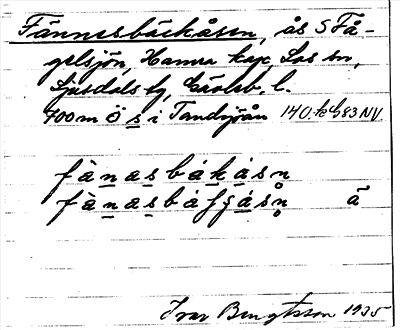 Fännesbäckåsen, ås S Få-
gelsjön, Hamra kap, Los sn,
Ljusdals tg, Gävleb. l.
700 m Ö s i Tandsjön 140. 83 NV.
fànasbákåsn
fànasbáfgåsn ã
Ivar Bengtsson 1935